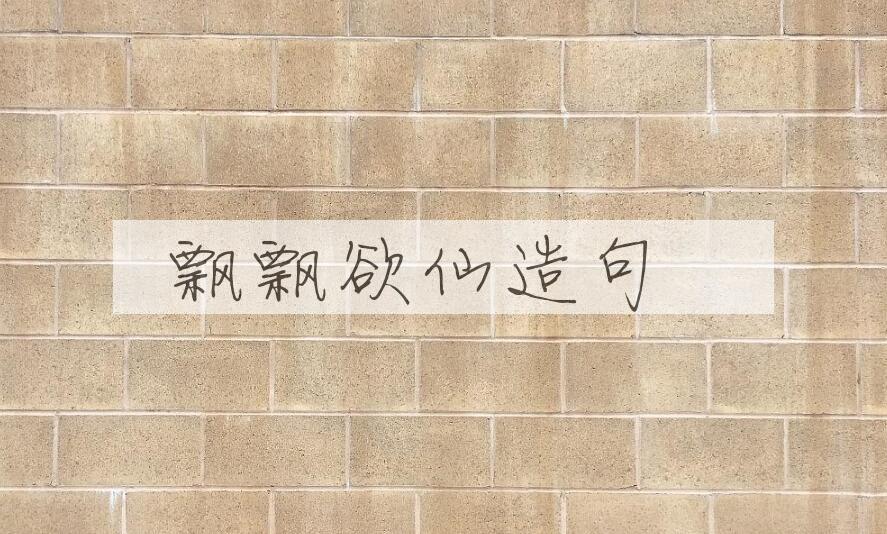 飘飘欲仙造句